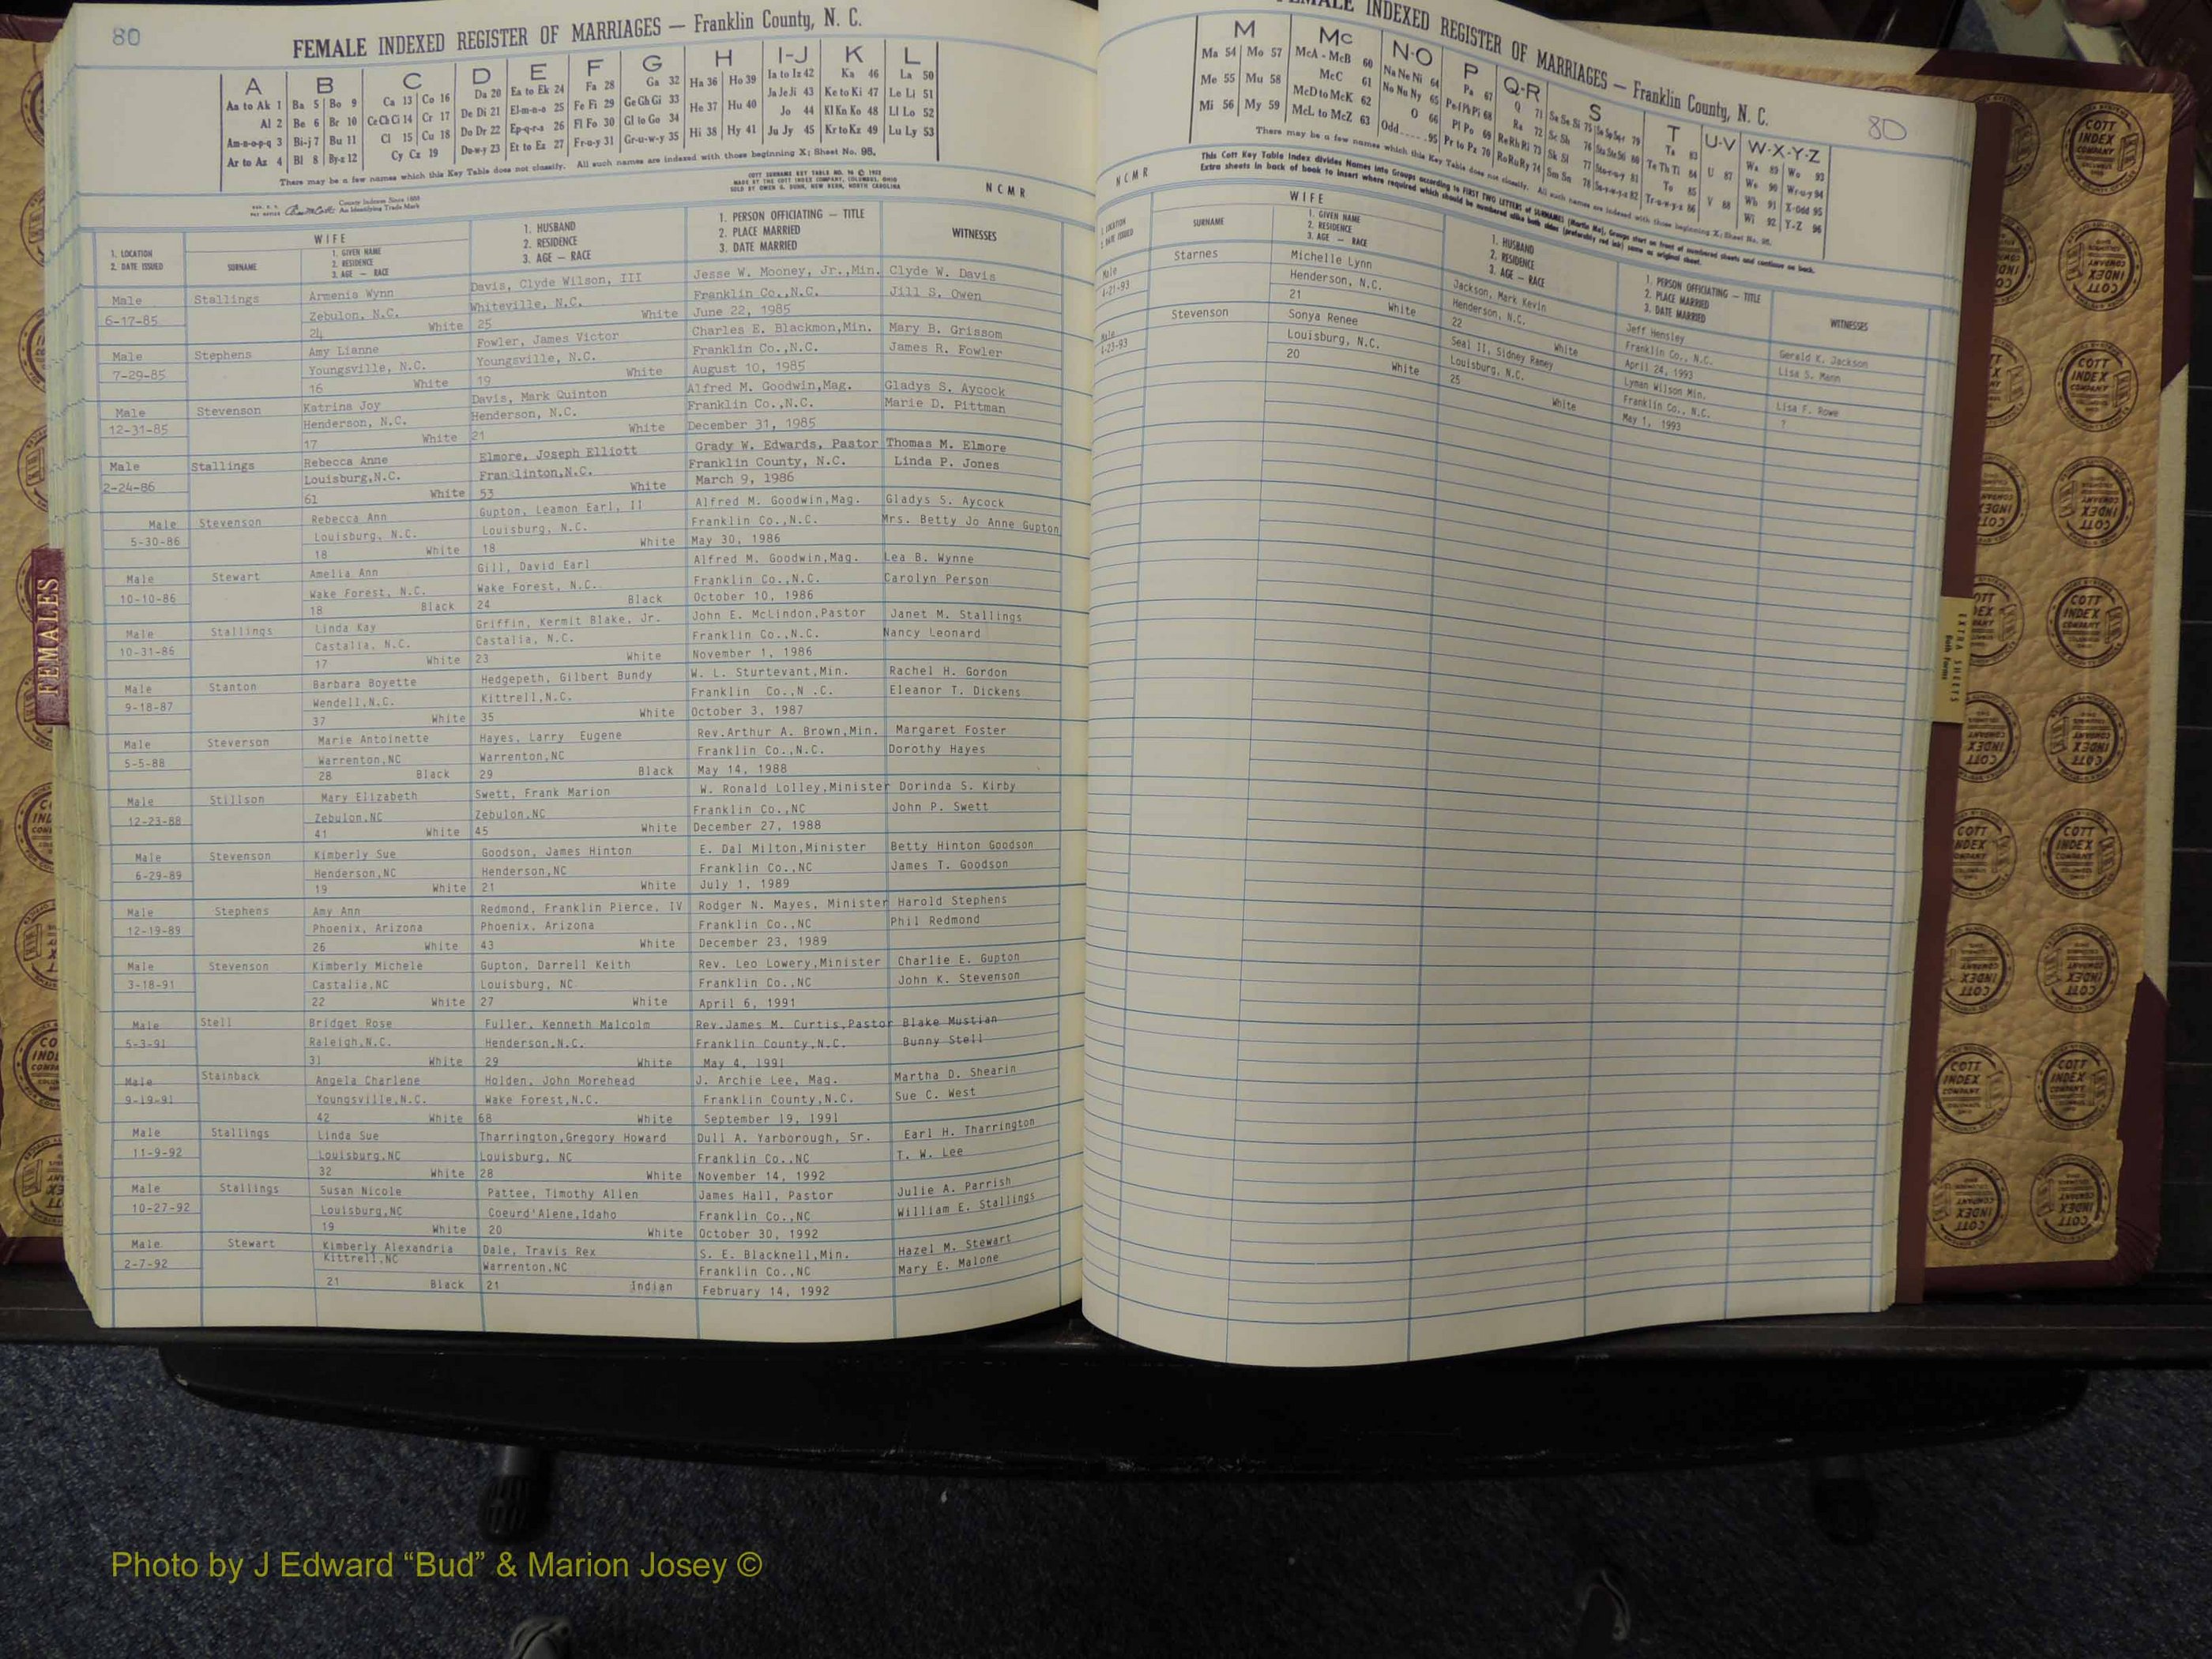 80
FEMALE INDEXED REGISTER OF MARRIAGES — Franklin County, N. C.
A B C D E F G H I-J K L
Aa to Ak 1 Ba 5 Bo 9 Ca 13 Co 16 Da 20 Ea to Ek 24 Fa 28 Ga 32 Ha 36 Ho 39 Ia to Iz 42 Ka 46 La 50
Al 2 Be 6 Br 10 Ce Ch Ci 14 Cr 17 De Di 21 El-m-n-o 25 Fe Fi 29 Ge Gh Gi 33 He 37 Hu 40 Ja Je Ji 43 Ke to Ki 47 Le Li 51
Am-n-o-p-q 3 Bi-j 7 Bu 11 Cl 15 Cu 18 Do Dr 22 Ep-q-r-s 26 Fl Fo 30 Gl to Go 34 Jo 44 Kl Kn Ko 48 Ll Lo 52
Ar to Az 4 Bl 8 By-z 12 Cy Cz 19 Du-w-y 23 Et to Ez 27 Fr-u-y 31 Gr-u-w-y 35 Hi 38 Hy 41 Ju Jy 45 Kr to Kz 49 Lu Ly 53
There may be a few names which this Key Table does not classify. All such names are indexed with those beginning X; Sheet No. 95.
County Indexes Since 1888
An Identifying Trade Mark
COTT SURNAME KEY TABLE NO. 96 © 1952
MADE BY THE COTT INDEX COMPANY, COLUMBUS, OHIO
SOLD BY OWEN G. DUNN, NEW BERN, NORTH CAROLINA
N C M R
1. LOCATION
2. DATE ISSUED
WIFE
SURNAME
1. GIVEN NAME
2. RESIDENCE
3. AGE — RACE
1. HUSBAND
2. RESIDENCE
3. AGE — RACE
1. PERSON OFFICIATING — TITLE
2. PLACE MARRIED
3. DATE MARRIED
WITNESSES
Male Stallings Armenia Wynn Davis, Clyde Wilson, III Jesse W. Mooney, Jr.,Min. Clyde W. Davis
6-17-85 Zebulon, N.C. Whiteville, N.C. Franklin Co.,N.C. Jill S. Owen
24 White 25 White June 22, 1985
Male Stephens Amy Lianne Fowler, James Victor Charles E. Blackmon,Min. Mary B. Grissom
7-29-85 Youngsville, N.C. Youngsville, N.C. Franklin Co.,N.C. James R. Fowler
16 White 19 White August 10, 1985
Male Stevenson Katrina Joy Davis, Mark Quinton Alfred M. Goodwin,Mag. Gladys S. Aycock
12-31-85 Henderson, N.C. Henderson, N.C. Franklin Co.,N.C. Marie D. Pittman
17 White 21 White December 31, 1985
Male Stallings Rebecca Anne Elmore, Joseph Elliott Grady W. Edwards, Pastor Thomas M. Elmore
2-24-86 Louisburg,N.C. Franclinton,N.C. Franklin County, N.C. Linda P. Jones
61 White 53 White March 9, 1986
Male Stevenson Rebecca Ann Gupton, Leamon Earl, II Alfred M. Goodwin,Mag. Gladys S. Aycock
5-30-86 Louisburg, N.C. Louisburg, N.C. Franklin Co.,N.C. Mrs. Betty Jo Anne Gupton
18 White 18 White May 30, 1986
Male Stewart Amelia Ann Gill, David Earl Alfred M. Goodwin,Mag. Lea B. Wynne
10-10-86 Wake Forest, N.C. Wake Forest, N.C. Franklin Co.,N.C. Carolyn Person
18 Black 24 Black October 10, 1986
Male Stallings Linda Kay Griffin, Kermit Blake, Jr. John E. McLindon,Pastor Janet M. Stallings
10-31-86 Castalia, N.C. Castalia, N.C. Franklin Co.,N.C. Nancy Leonard
17 White 23 White November 1, 1986
Male Stanton Barbara Boyette Hedgepeth, Gilbert Bundy W. L. Sturtevant,Min. Rachel H. Gordon
9-18-87 Wendell,N.C. Kittrell,N.C. Franklin Co.,N .C. Eleanor T. Dickens
37 White 35 White October 3, 1987
Male Steverson Marie Antoinette Hayes, Larry Eugene Rev.Arthur A. Brown,Min. Margaret Foster
5-5-88 Warrenton,NC Warrenton,NC Franklin Co.,N.C. Dorothy Hayes
28 Black 29 Black May 14, 1988
Male Stillson Mary Elizabeth Swett, Frank Marion W. Ronald Lolley,Minister Dorinda S. Kirby
12-23-88 Zebulon,NC Zebulon,NC Franklin Co.,NC John P. Swett
41 White 45 White December 27, 1988
Male Stevenson Kimberly Sue Goodson, James Hinton E. Dal Milton,Minister Betty Hinton Goodson
6-29-89 Henderson,NC Henderson,NC Franklin Co.,NC James T. Goodson
19 White 21 White July 1, 1989
Male Stephens Amy Ann Redmond, Franklin Pierce, IV Rodger N. Mayes, Minister Harold Stephens
12-19-89 Phoenix, Arizona Phoenix, Arizona Franklin Co.,NC Phil Redmond
26 White 43 White December 23, 1989
Male Stevenson Kimberly Michele Gupton, Darrell Keith Rev. Leo Lowery,Minister Charlie E. Gupton
3-18-91 Castalia,NC Louisburg, NC Franklin Co.,NC John K. Stevenson
22 White 27 White April 6, 1991
Male Stell Bridget Rose Fuller, Kenneth Malcolm Rev.James M. Curtis,Pastor Blake Mustian
5-3-91 Raleigh,N.C. Henderson,N.C. Franklin County,N.C. Bunny Stell
31 White 29 White May 4, 1991
Male Stainback Angela Charlene Holden, John Morehead J. Archie Lee, Mag. Martha D. Shearin
9-19-91 Youngsville,N.C. Wake Forest,N.C. Franklin County,N.C. Sue C. West
42 White 68 White September 19, 1991
Male Stallings Linda Sue Tharrington,Gregory Howard Dull A. Yarborough, Sr. Earl H. Tharrington
11-9-92 Louisburg,NC Louisburg, NC Franklin Co.,NC T. W. Lee
32 White 28 White November 14, 1992
Male Stallings Susan Nicole Pattee, Timothy Allen James Hall, Pastor Julie A. Parrish
10-27-92 Louisburg,NC Coeurd'Alene,Idaho Franklin Co.,NC William E. Stallings
19 White 20 White October 30, 1992
Male Stewart Kimberly Alexandria Dale, Travis Rex S. E. Blacknell,Min. Hazel M. Stewart
2-7-92 Kittrell,NC Warrenton,NC Franklin Co.,NC Mary E. Malone
21 Black 21 Indian February 14, 1992
FEMALES
FEMALE INDEXED REGISTER OF MARRIAGES — Franklin County, N. C.
80
M Mc N-O P Q-R S T U-V W-X-Y-Z
Ma 54 Mo 57 McA - McB 60 Na Ne Ni 64 Pa 67 Q 71 Ta 83 Wa 89 Wo 93
Me 55 Mu 58 McC 61 No Nu Ny 65 Ra 72 Sc Sh 76 Te Th Ti 84 U 87 We 90 Wr-u-y 94
McD to McK 62 O 66 Pl Po 69 Re Rh Ri 73 Sk Sl 77 To 85 Wh 91 X-Odd 95
Mi 56 My 59 McL to McZ 63 Odd.....95 Pr to Pz 70 Ro Ru Ry 74 Sm Sn 78 V 88 Wi 92 Y-Z 96
There may be a few names which this Key Table does not classify. All such names are indexed with those beginning X; Sheet No. 95.
This Cott Key Table Index divides Names into Groups according to FIRST TWO LETTERS of SURNAMES (Martin Ma), Groups start on front of numbered sheets and continue on back.
Extra sheets in back of book to insert where required which should be numbered alike both sides (preferably red ink) same as original sheet.
N C M R
1. LOCATION
2. DATE ISSUED
WIFE
SURNAME
1. GIVEN NAME
2. RESIDENCE
3. AGE — RACE
1. HUSBAND
2. RESIDENCE
3. AGE — RACE
1. PERSON OFFICIATING — TITLE
2. PLACE MARRIED
3. DATE MARRIED
WITNESSES
Male Starnes Michelle Lynn Jackson, Mark Kevin Jeff Hensley Gerald K. Jackson
4-21-93 Henderson, N.C. Henderson, N.C. Franklin Co., N.C. Lisa S. Mann
21 White 22 White April 24, 1993
Male Stevenson Sonya Renee Seal II, Sidney Raney Lyman Wilson Min. Lisa F. Rowe
4-23-93 Louisburg, N.C. Louisburg, N.C. Franklin Co., N.C. ?
20 White 25 White May 1, 1993
EXTRA SHEETS
COTT INDEX COMPANY
Photo by J Edward “Bud” & Marion Josey ©